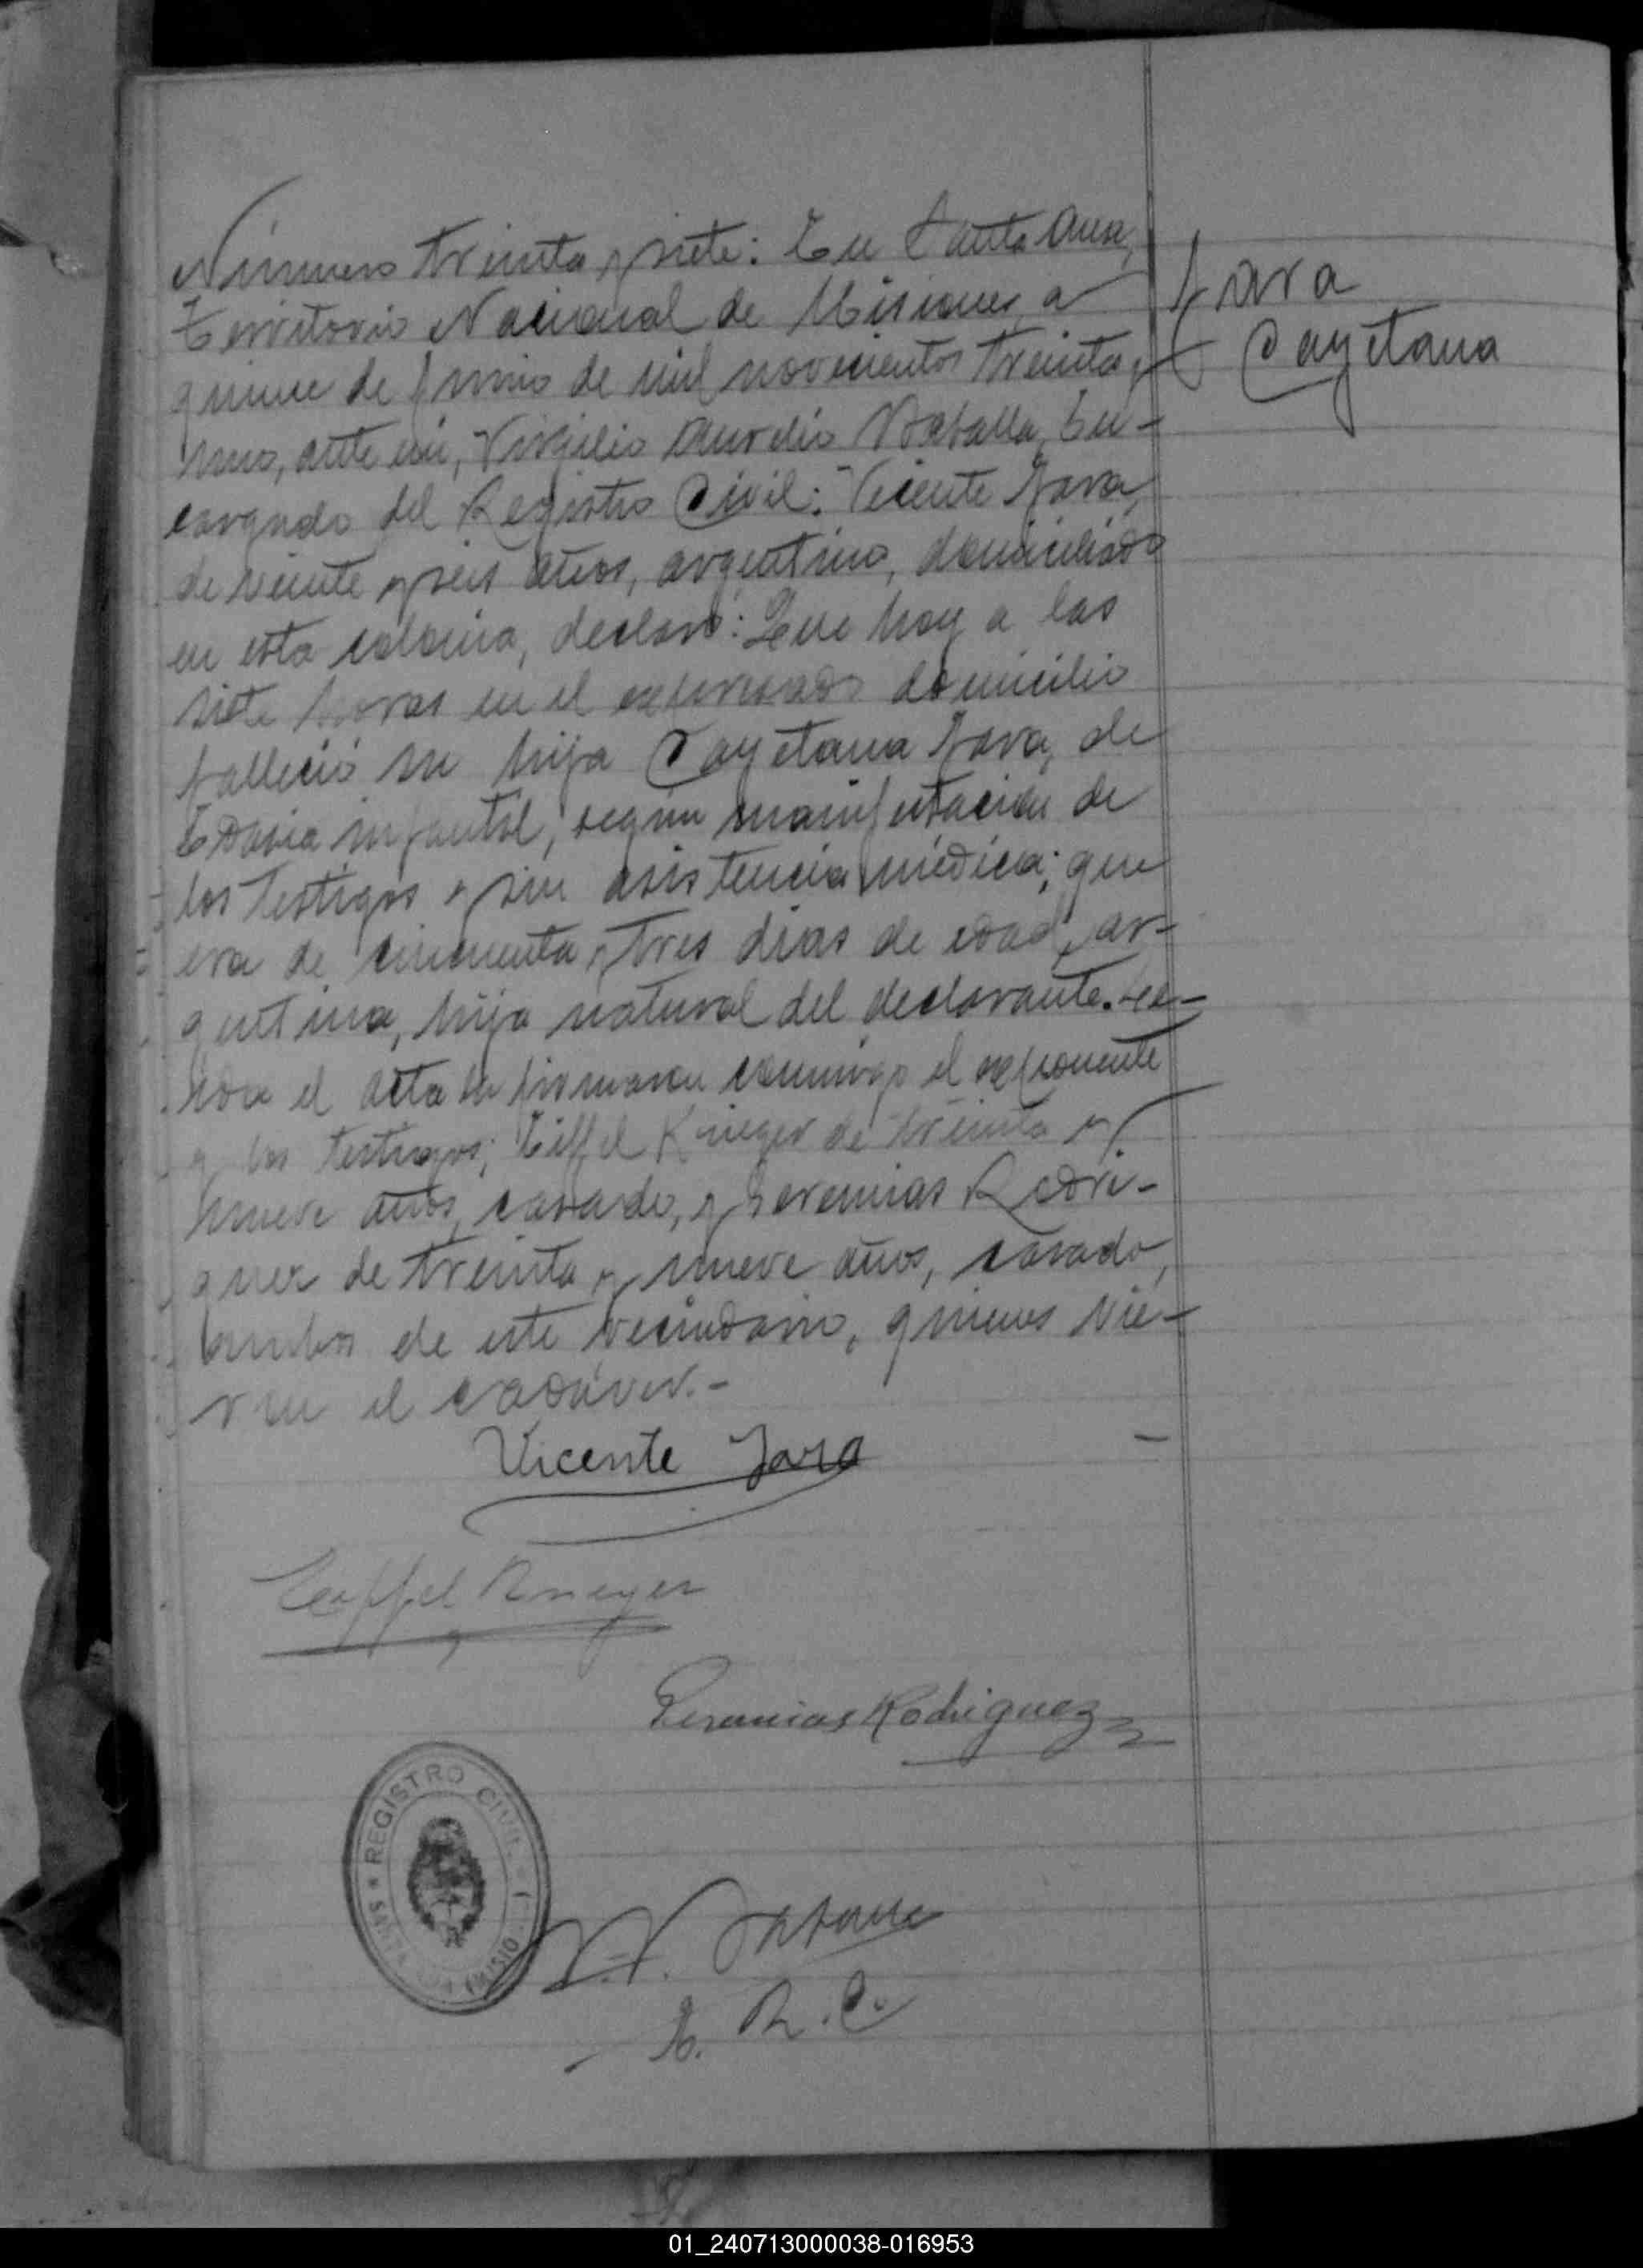 Número treinta y siete: En Santa Ana,
Territorio Nacional de Misiones, a
quince de junio de mil novecientos treinta y
uno, ante mi, Virgilio Aurelio, En-
cargado del Registro Civil: Vicente Jara,
de veinte y seis años, argentino, domiciliado
en esta colonia, declaró: Que hoy a las
siete horas en el expresado domicilio
falleció su hija Cayetana Jara, de
infantil, según manifestación de
los testigos y sin asistencia médica; que
era de cincuenta y tres días de edad, ar-
gentina, hija natural del declarante. Leí-
da el acta la firmaron conmigo el exponente
y los testigos; Eiffel Krieger de treinta y
nueve años, casado, y Geremias Rodri-
guez de treinta y nueve años, casado,
ambos de este vecindario, quienes vie-
ron el cadáver.-
Jara
Cayetana
Vicente Jara
Eiffel Krieger
Geremias Rodriguez
REGISTRO CIVIL
SANTA ANA
E. R. C.
01_240713000038-016953